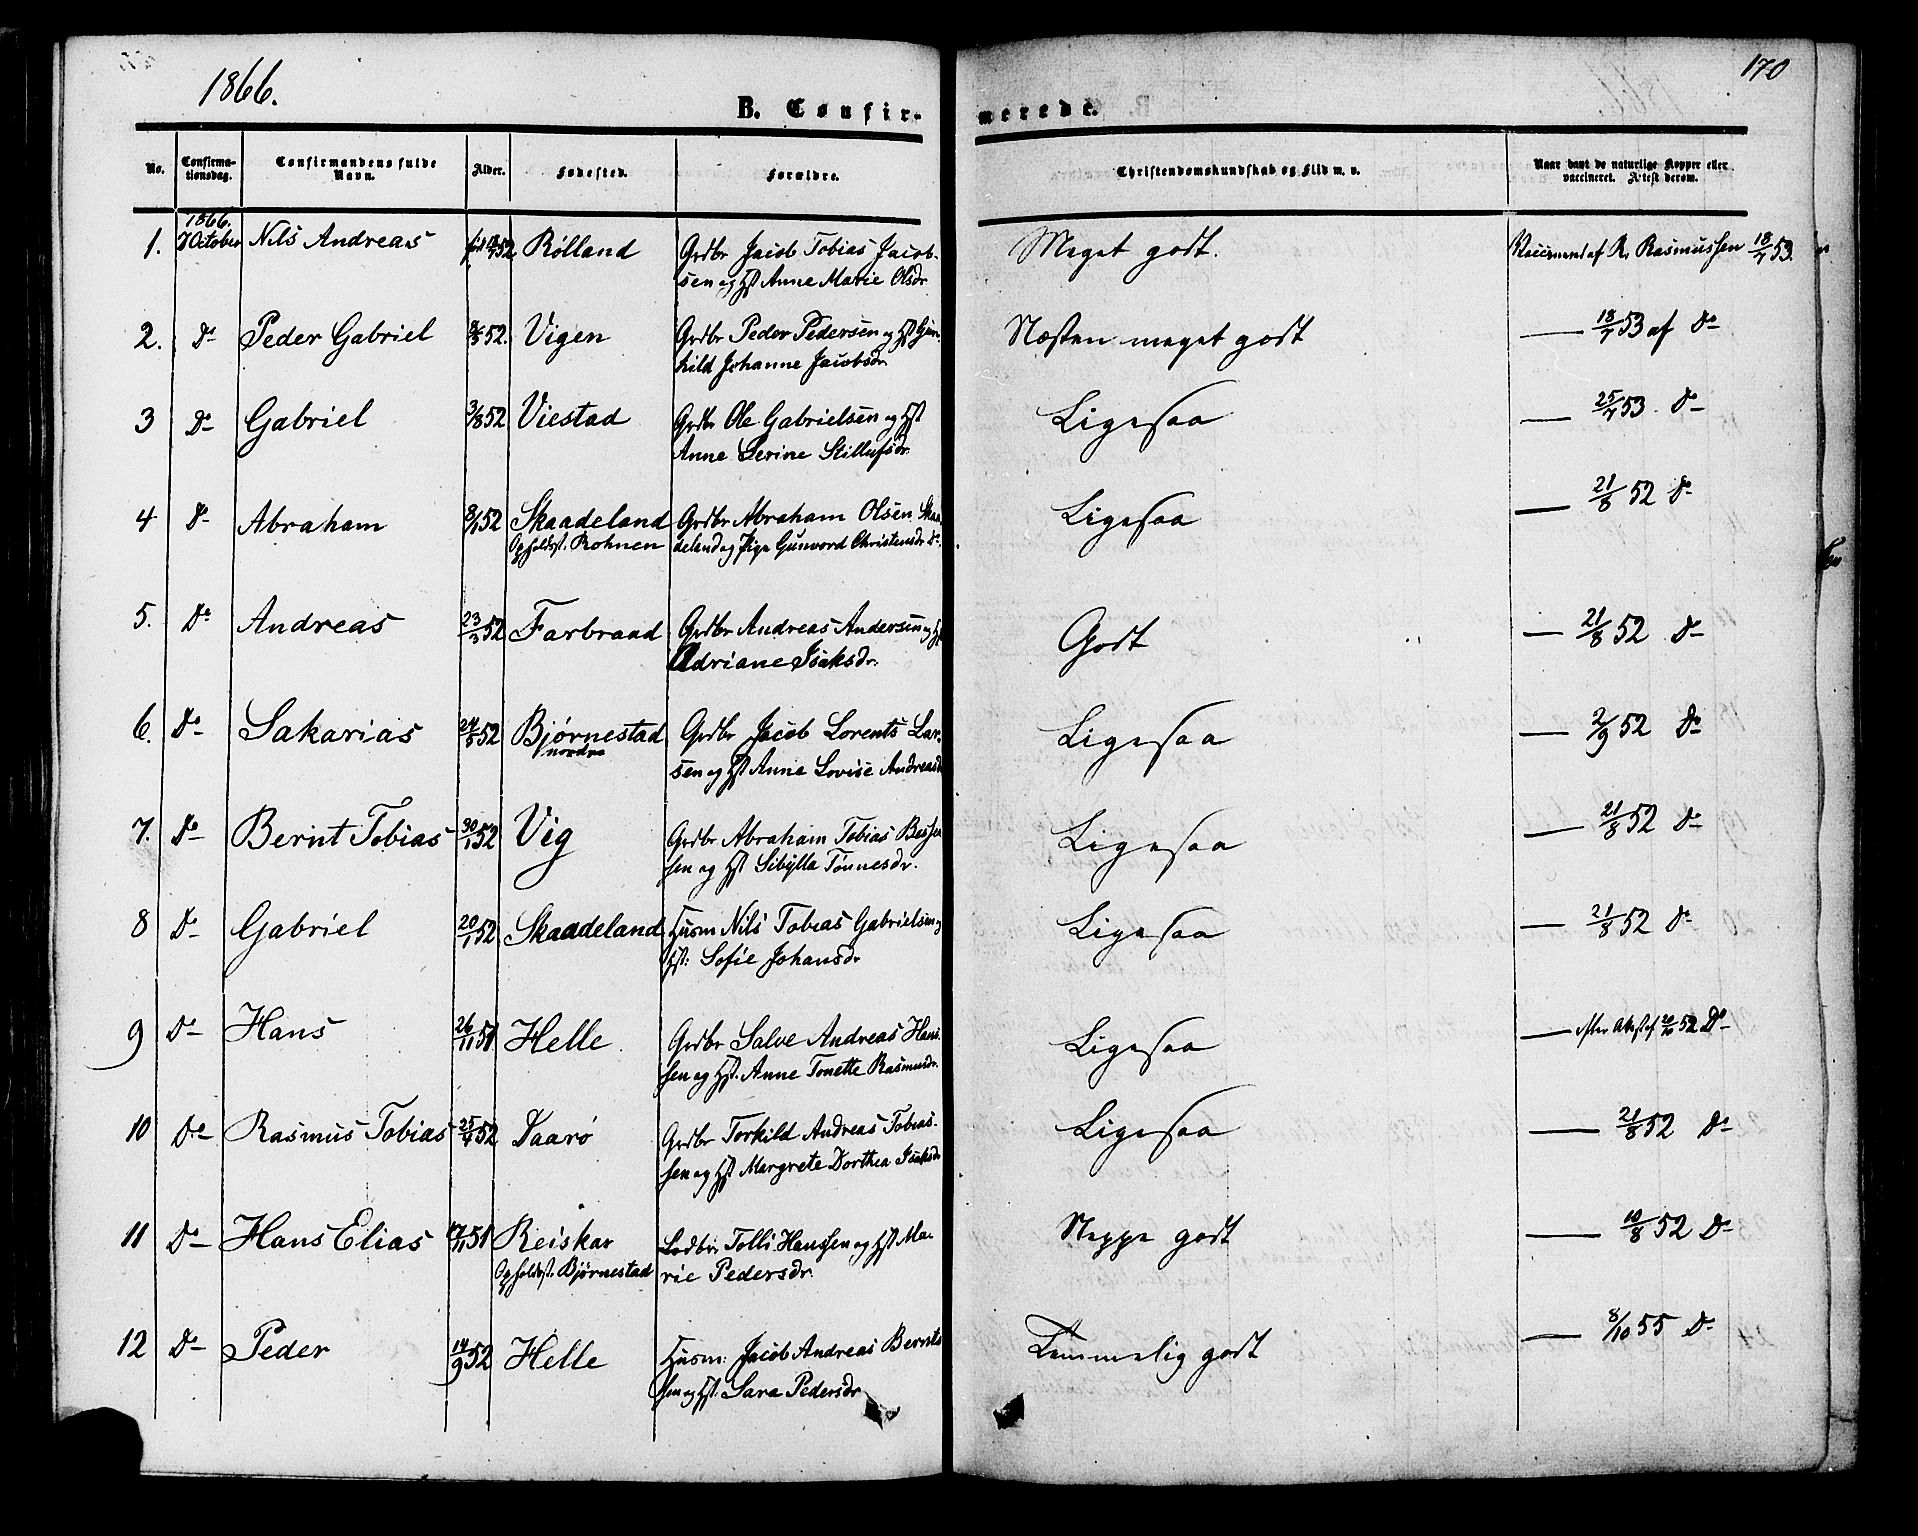 1866.
170
B. Confirmerede.
No. Confirmationsdag. Confirmandens fulde Navn. Alder. Fødested. Forældre. Christendomskundskab og Flid m. v. Naar havt de naturlige Kopper eller vaccineret. Attest derom.
1. 1866. 7 October Nils Andreas 52 Rølland Grdbr Jacob Tobias Jacob-
sen og Hst Anne Marie Olsdr Meget godt. Vaccinered af R. Rasmussen 18/7 53.
2. Do Peder Gabriel 52. Vigen Grdbr Peder Pedersen og Hst Gun-
hild Johanne Jacobsdr Næsten meget godt — 18/7 53 af Do
3 Do Gabriel 3/8 52 Viestad Grdbr Ole Gabrielsen og Hst
Anne Serine Stillufsdr Ligesaa — 25/7 53 Do
4 Do Abraham 8/1 52 Skaadeland Grdbr Abraham Olsen Skaa-
Opholdst. Rohnen deland og Pige Gunvord Christensdr Do. Ligesaa — 21/8 52 Do
5. Do Andreas 23/3 52 Farbraad Grdbr Andreas Andersen og Hst
Adriane Isaksdr. Godt — 21/8 52 Do
6. Do Sakarias 24/5 52 Bjørnestad Grdbr Jacob Lorents Lar-
nordre sen og Hst Anne Lovise Andreasdr Ligesaa — 2/9 52 Do
7. Do Bernt Tobias 30/1 52 Vig Grdbr Abraham Tobias
sen og Hst Sibylla Tönnesdr. Ligesaa — 21/8 52 Do
8 Do Gabriel 20/1 52 Skaadeland Husm Nils Tobias Gabrielsen og
Hst: Sofie Johansdr Ligesaa — 21/8 52 Do
9 Do Hans 26/11 51 Helle Grdbr Salve Andreas Hans-
sen og Hst. Anne Tonette Rasmusdr. Ligesaa — efter Attest af 20/10 52 Do
10 Do Rasmus Tobias 25/4 52 Daarø Grdbr Torkild Andreas Tobias-
sen og Hst Margrete Dorthea Isaksdr Ligesaa — 21/8 52 Do
11 Do Hans Elias 17/11 51 Reiskar Lodbr Tolli Hanssen og Hst Ma-
Opholdst. Bjørnestad rie Pedersdr. Neppe godt — 10/8 52 Do
12 Do Peder 14/9 52 Helle Husm: Jacob Andreas Bernt-
sen og Hst. Sara Pedersdr Temmelig godt — 8/10 55 Do